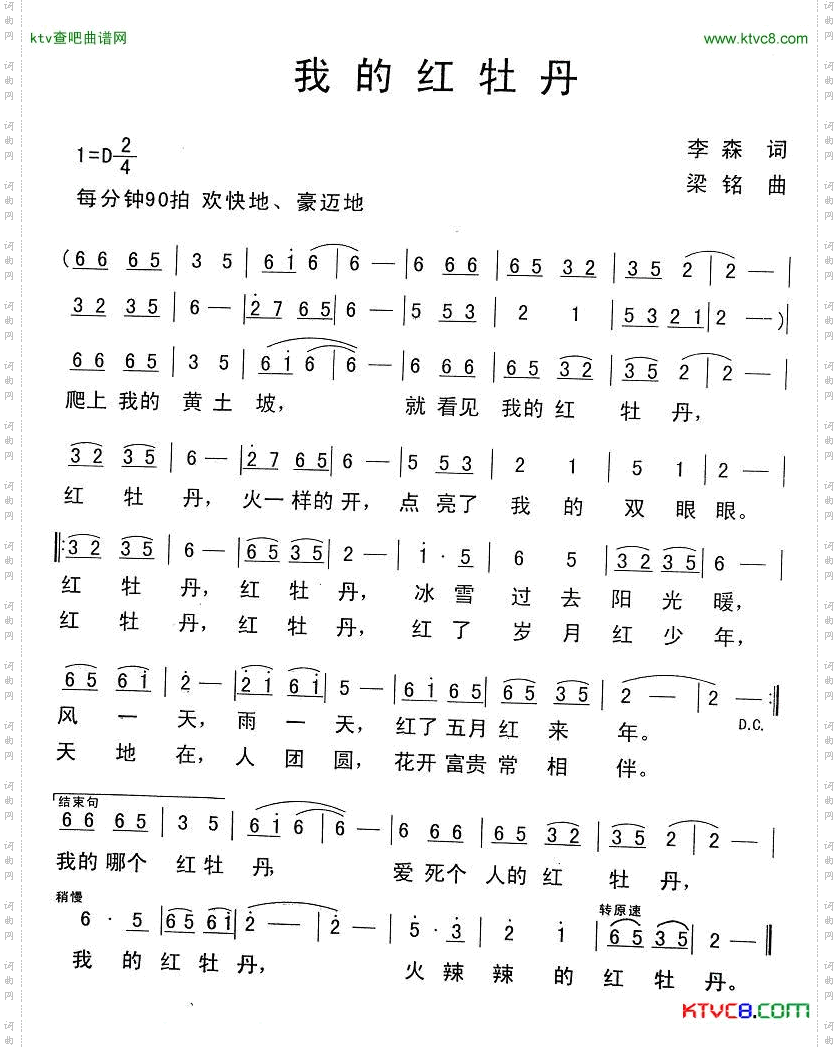 ktv查吧曲谱网
www.ktvc8.com
我的红牡丹
1=D 2/4
李森 词
梁铭 曲
每分钟90拍 欢快地、豪迈地
(66 65 | 3 5 | 6i 6 | 6 — | 6 66 | 65 32 | 35 2 | 2 — |
32 35 | 6 — | 27 65 | 6 — | 5 53 | 2 1 | 5321 | 2 —) |
66 65 | 3 5 | 6i 6 | 6 — | 6 66 | 65 32 | 35 2 | 2 — |
爬上我的 黄土坡, 就看见 我的红 牡丹,
32 35 | 6 — | 27 65 | 6 — | 5 53 | 2 1 | 5 1 | 2 — |
红牡丹, 火一样的开, 点亮了 我的 双眼眼。
‖: 32 35 | 6 — | 65 35 | 2 — | i · 5 | 6 5 | 32 35 | 6 — |
红牡丹, 红牡丹, 冰雪过去阳光暖,
红牡丹, 红牡丹, 红了岁月红少年,
65 6i | 2 — | 2i 6i | 5 — | 6i 65 | 65 35 | 2 — | 2 — :‖
风一天, 雨一天, 红了五月红来年。 D.C.
天地在, 人团圆, 花开富贵常相伴。
结束句
66 65 | 3 5 | 6i 6 | 6 — | 6 66 | 65 32 | 35 2 | 2 — |
我的哪个 红牡丹, 爱死个 人的红 牡丹,
稍慢 转原速
6 · 5 | 65 6i | 2 — | 2 — | 5 · 3 | 2 i | 65 35 | 2 — ‖
我的红牡丹, 火辣辣的红牡丹。
KTVC8.COM
词曲网